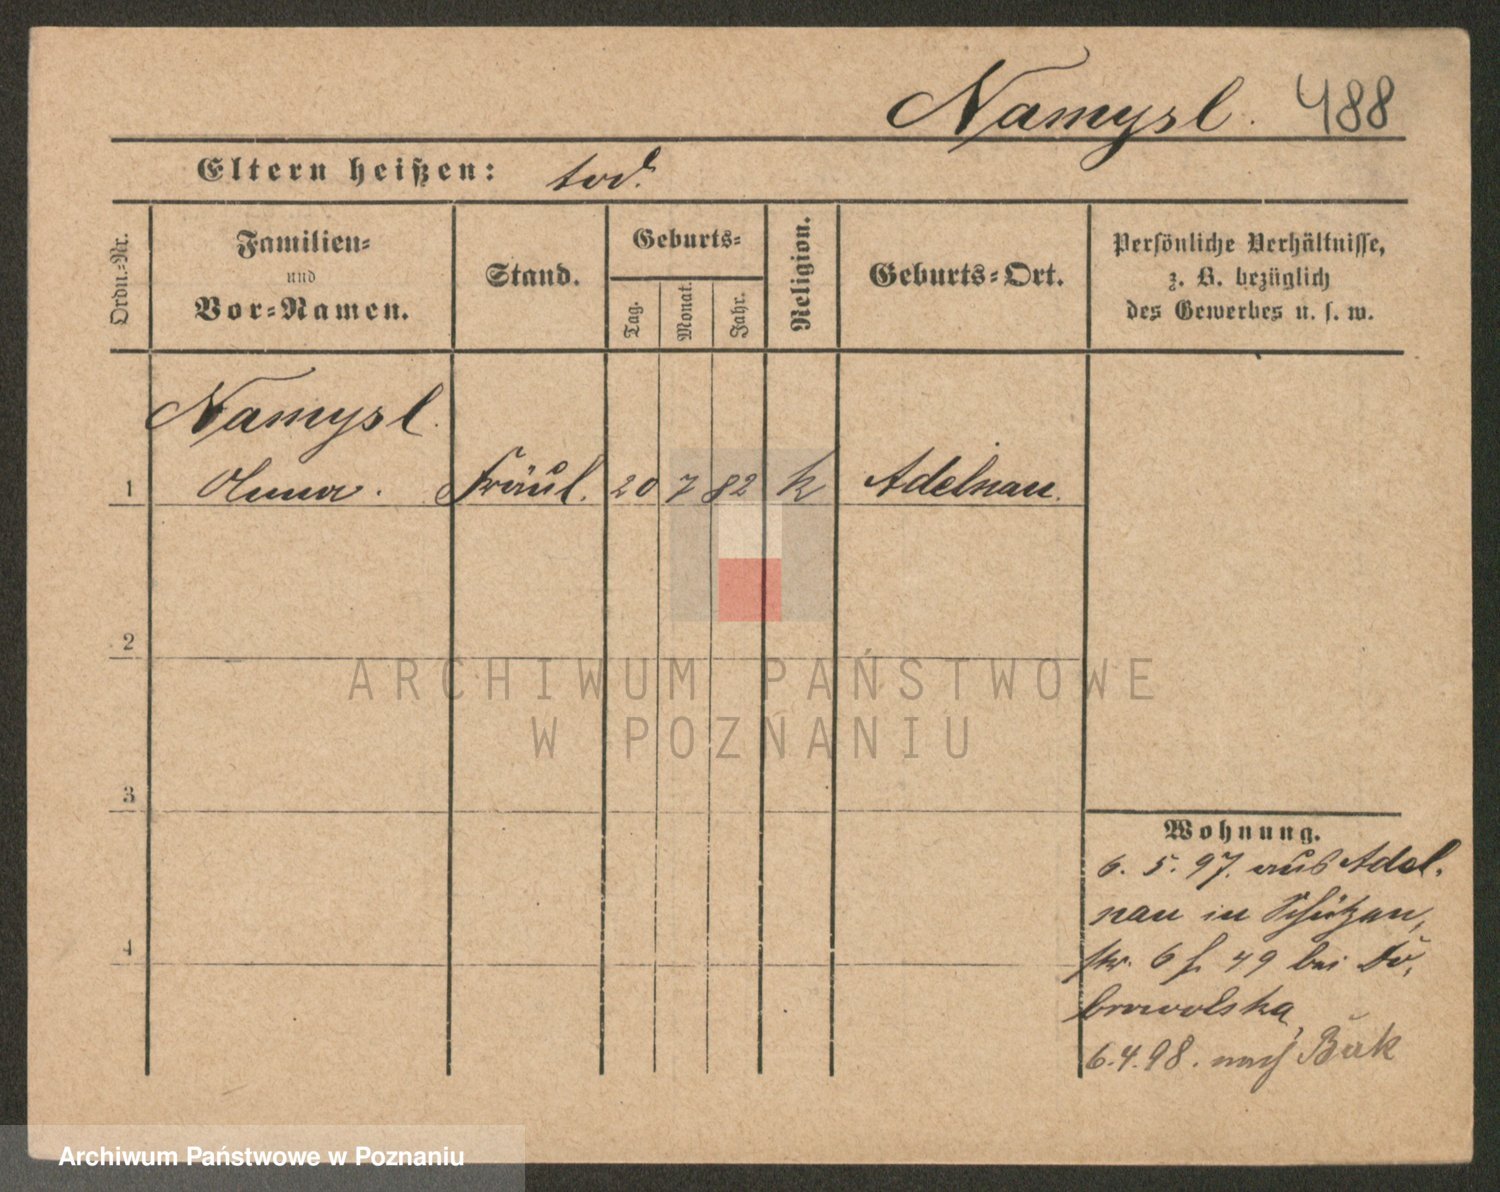 Namysl. 488
Eltern heißen: tod.
Ordn.-Nr.
Familien-
und
Vor-Namen.
Stand.
Geburts-
Tag.
Monat.
Jahr.
Religion.
Geburts-Ort.
Persönliche Verhältnisse,
z. B. bezüglich
des Gewerbes u. s. w.
Namysl.
1 Anna. Fräul. 20 7 82 k Adelnau.
2
3
4
Wohnung.
6. 5. 97. aus Adel-
nau in Schützen-
str. 6 49 bei Do-
browolska
6.4.98. nach Buk
ARCHIWUM PAŃSTWOWE
W POZNANIU
Archiwum Państwowe w Poznaniu